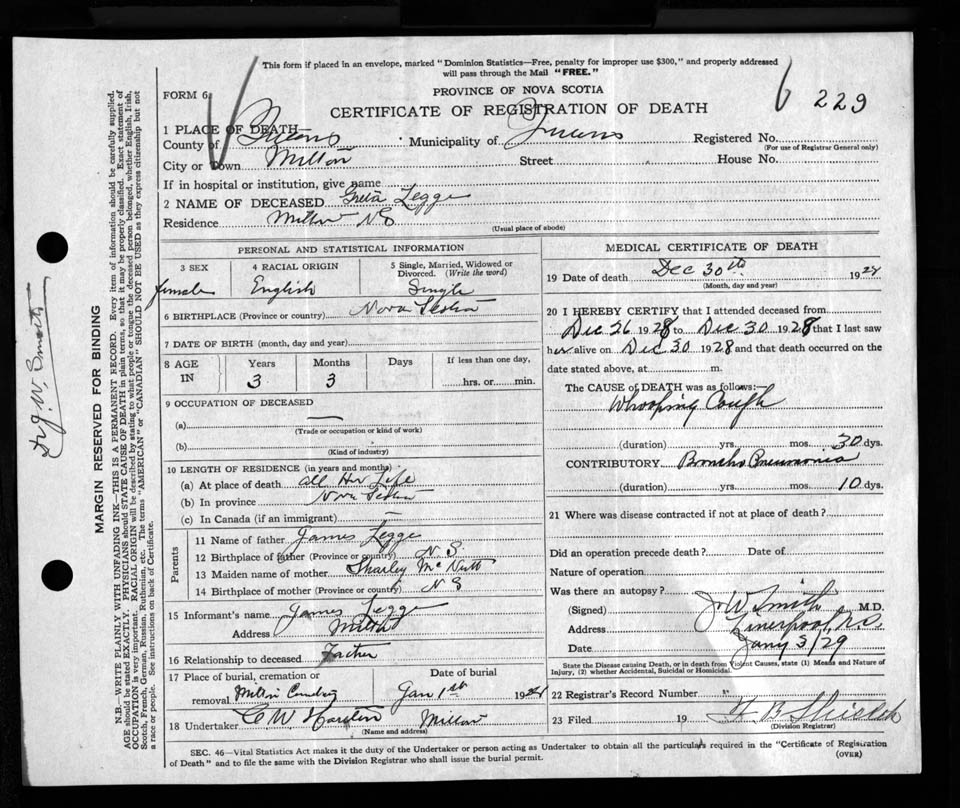 This form if placed in an envelope, marked "Dominion Statistics—Free, penalty for improper use $300," and properly addressed
will pass through the Mail "FREE."
PROVINCE OF NOVA SCOTIA
FORM 6
CERTIFICATE OF REGISTRATION OF DEATH
6 229
1 PLACE OF DEATH
County of Queens Municipality of Queens Registered No.
(For use of Registrar General only)
City or Town Milton Street House No.
If in hospital or institution, give name
2 NAME OF DECEASED Greta Legge
Residence Milton N S
(Usual place of abode)
PERSONAL AND STATISTICAL INFORMATION
3 SEX 4 RACIAL ORIGIN 5 Single, Married, Widowed or
Divorced. (Write the word)
female English Single
6 BIRTHPLACE (Province or country) Nova Scotia
7 DATE OF BIRTH (month, day and year)
8 AGE IN Years Months Days If less than one day,
3 3 hrs. or min.
9 OCCUPATION OF DECEASED
(a)
(Trade or occupation or kind of work)
(b)
(Kind of industry)
10 LENGTH OF RESIDENCE (in years and months)
(a) At place of death all Her Life
(b) In province Nova Scotia
(c) In Canada (if an immigrant) —
Parents
11 Name of father James Legge
12 Birthplace of father (Province or country) N S.
13 Maiden name of mother Mc Nutt
14 Birthplace of mother (Province or country) N S
15 Informant's name James Legge
Address Milton
16 Relationship to deceased Father
17 Place of burial, cremation or removal Date of burial
Milton Cemetery Jan 1st 192
18 Undertaker C W Milton
(Name and address)
MEDICAL CERTIFICATE OF DEATH
19 Date of death Dec 30th 1928
(Month, day and year)
20 I HEREBY CERTIFY that I attended deceased from
Dec 26 1928 to Dec 30 1928 that I last saw
her alive on Dec 30 1928 and that death occurred on the
date stated above, at m.
The CAUSE of DEATH was as follows:—
Whooping Cough
(duration) yrs. mos. 30 dys.
CONTRIBUTORY Broncho Pneumonia
(duration) yrs. mos. 10 dys.
21 Where was disease contracted if not at place of death?
Did an operation precede death? Date of
Nature of operation
Was there an autopsy?
(Signed) J. W. Smith M.D.
Address Liverpool, N.S.
Date Jany 3/29
State the Disease causing Death, or in death from Violent Causes, state (1) Means and Nature of
Injury, (2) whether Accidental, Suicidal or Homicidal.
22 Registrar's Record Number
23 Filed 19
(Division Registrar)
SEC. 46—Vital Statistics Act makes it the duty of the Undertaker or person acting as Undertaker to obtain all the particulars required in the "Certificate of Registration
of Death" and to file the same with the Division Registrar who shall issue the burial permit. (OVER)
MARGIN RESERVED FOR BINDING
N.B.—WRITE PLAINLY WITH UNFADING INK—THIS IS A PERMANENT RECORD. Every item of information should be carefully supplied.
AGE should be stated EXACTLY. PHYSICIANS should STATE CAUSE OF DEATH in plain terms, so that it may be properly classified. Exact statement of
OCCUPATION is very important. RACIAL ORIGIN will be described by stating to what people or tongue the deceased person belonged, whether English, Irish,
Scotch, French, German, Russian, Ruthenian, etc. The terms "AMERICAN" or "CANADIAN" SHOULD NOT BE USED as they express citizenship but not
a race or people. See instructions on back of Certificate.